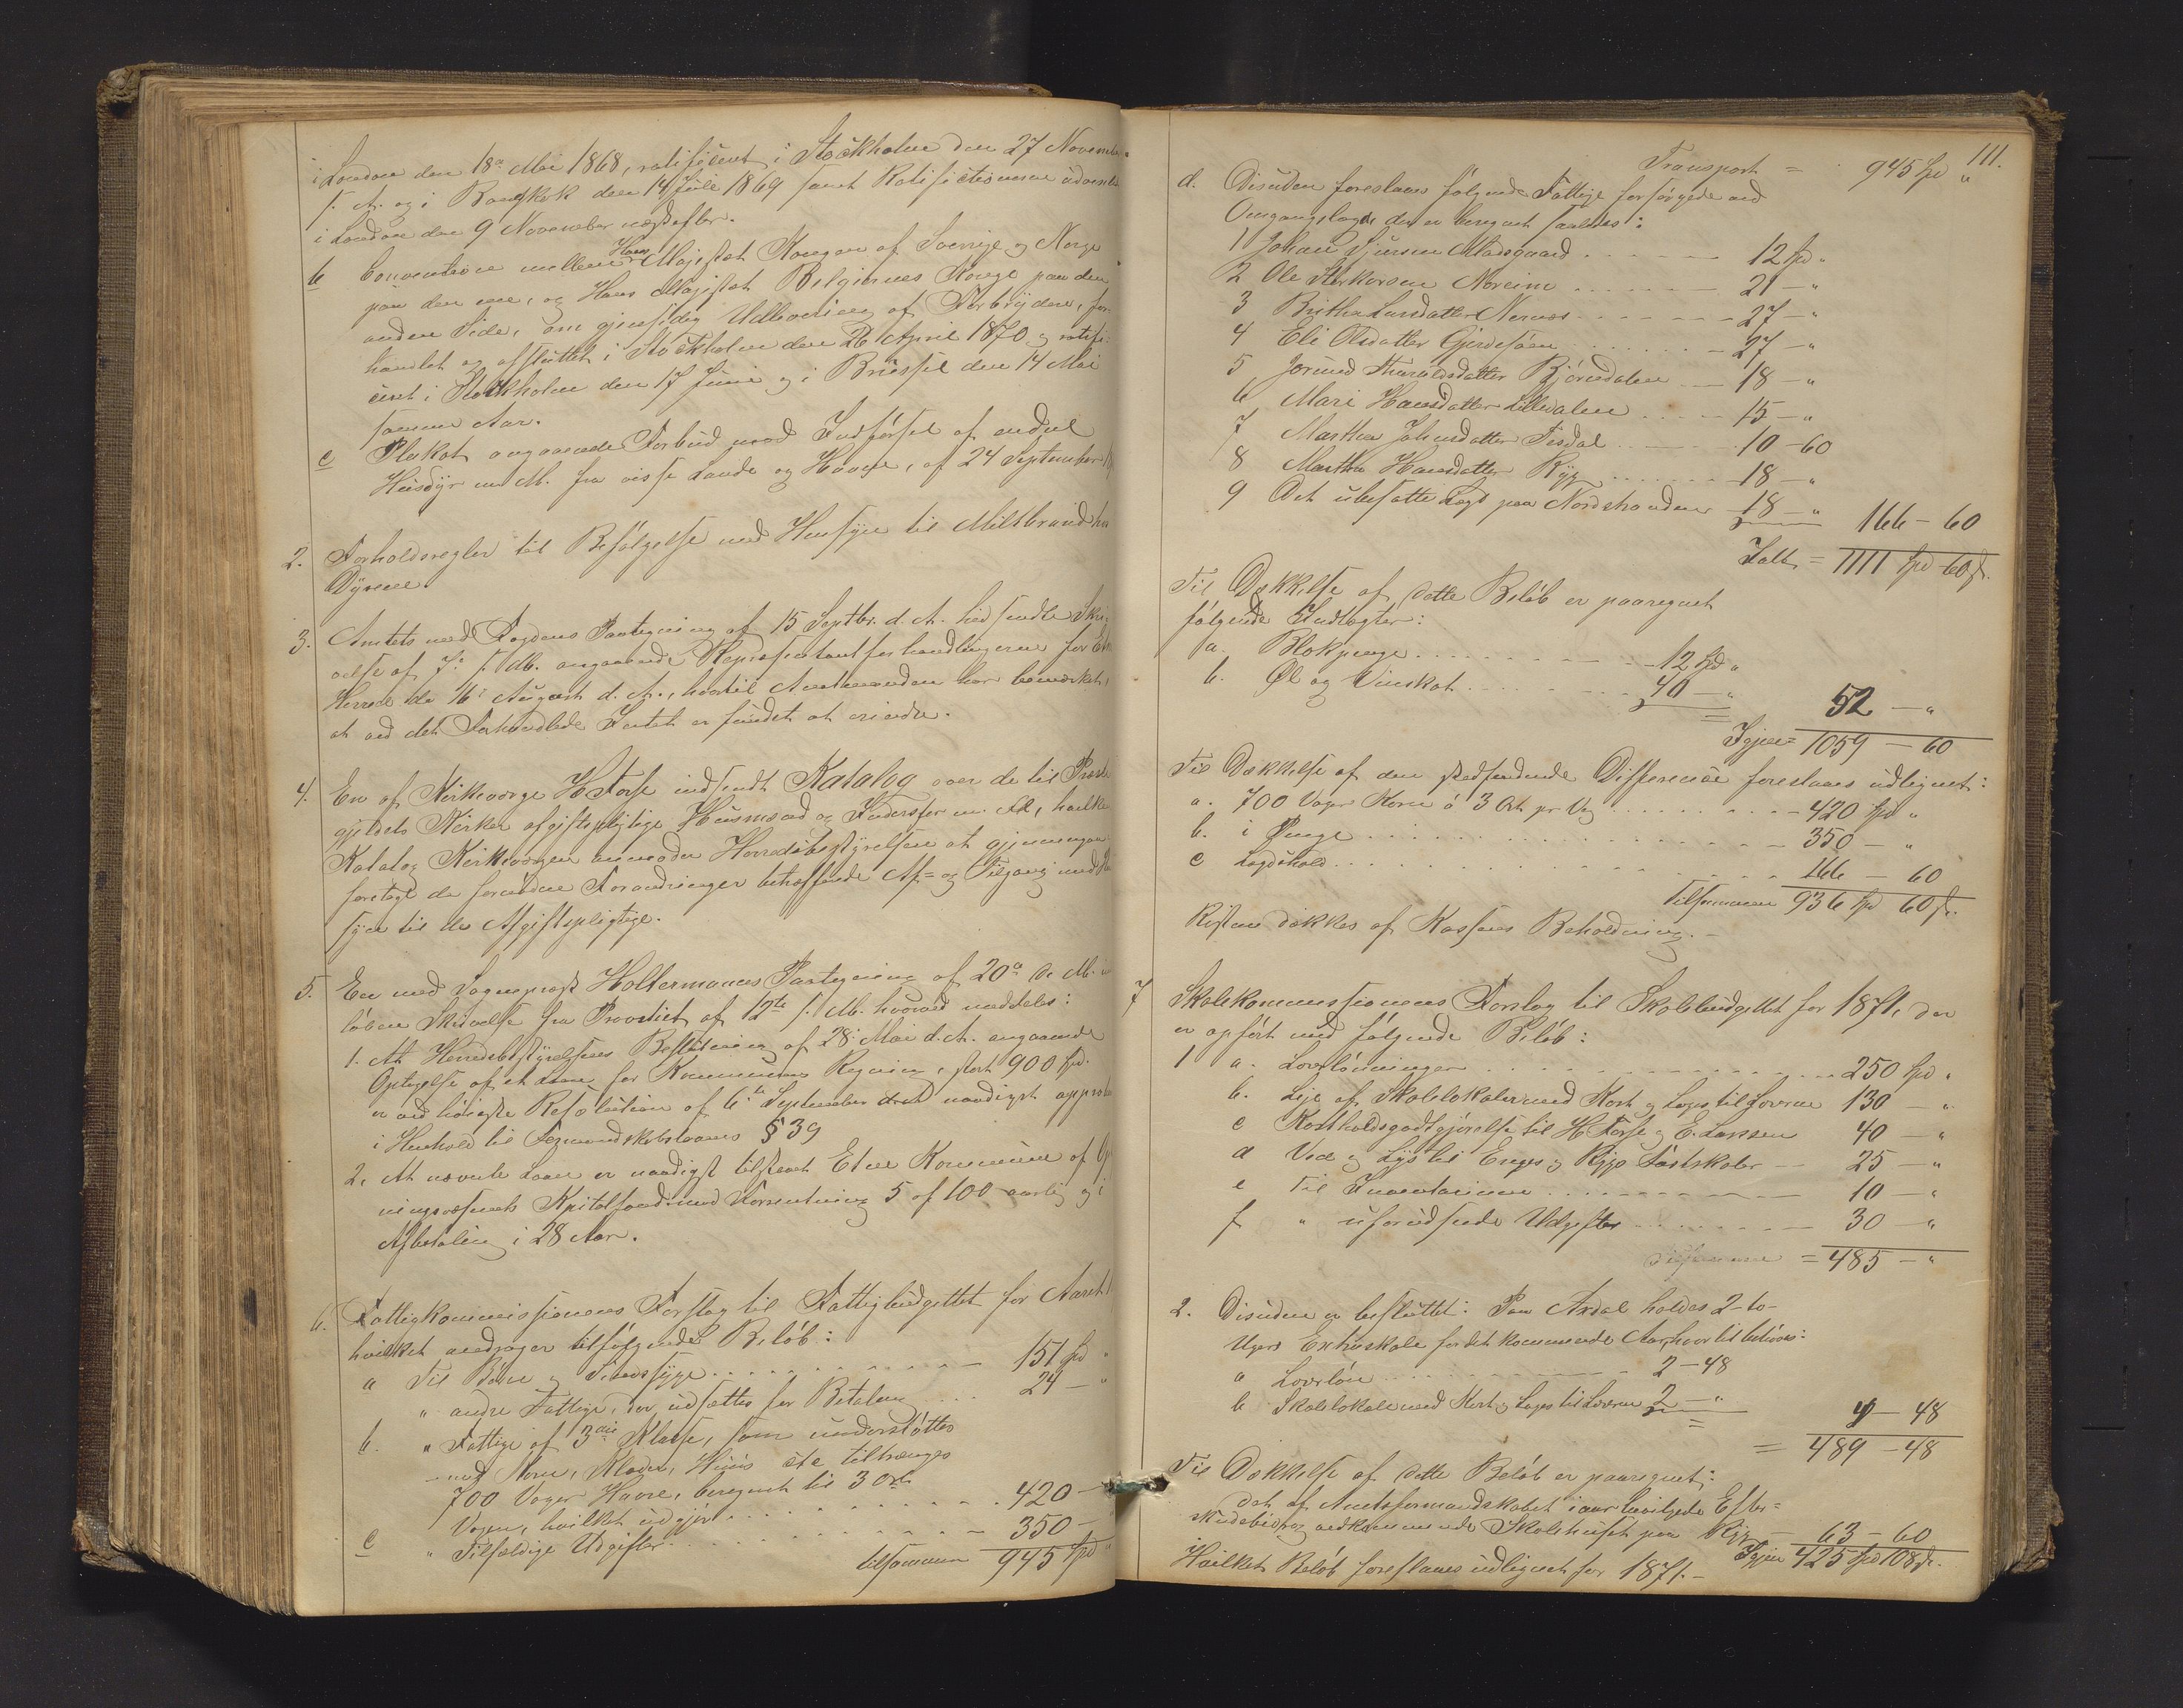 i London den 18de Mai 1868, ratificeret i Stockholm den 27 Novembe
s. A. og i Bangkok den 14 Juli 1869 samt Ratificationerne udvexl
i London den 9 November næstefter.
b Convention mellem Hans Majestæt Kongen af Sverrige og Norge
paa den ene, og Hans Majestæt Belgiernes Konge paa den
anden Side, om gjensidig Udlevering af Forbrydere, for
handlet og afsluttet i Stockholm den 26 April 1870 og ratifi-
ceret i Stockholm den 17 Juni og i Brüssel den 14 Mai
samme Aar.
c Plakat angaaende Forbud mod Indførsel af endeel
Huusdyr m M. fra visse Lande og Havne, af 24 September
2. Forholdsregler til Befølgelse med Hensyn til Miltbrand hos
Dyrene.
3. Amtets med Fogdens Paategning af 15 Septbr. d. A. hidsendte Skri-
velse af 7de s. M. angaaende Repræsentantforhandlingerne for Etne
Herred de 16de August d. A., hvortil Amtmanden har bemærket,
at ved det Forhandlede Intet er fundet at erindre.
4. En af Kirkeværge H Torse indsendt Katalog over de til Præste
gjeldets Kirker afgiftspligtige Huusmænd og Inderster m. Fl., hvilken
Katalog Kirkeværgen anmoder Herredsbestyrelsen at gjennemgaa
foretage de fornødne Forandringer betræffende Af- og Tilgang med Hen
syn til de Afgiftspligtige.
5. En med Sognepræst Holtermanns Paategning af 20de ds. M.
løben Skrivelse fra Provstiet af 12te s. M. hvorved meddeles:
1. At Herredsbestyrelsens Beslutning af 28de Mai d. A. angaaende
Optagelse af et Laan for Kommunens Regning, stort 900 Spd.
er ved høieste Resolution af 6te September naadigst approb
i Henhold til Formandskabslovens § 39
2. At nævnte Laan er naadigst tilstaaet Etne Kommune af Op
ningsvæsenets Kapitalfond mod Forrentning 5 af 100 aarlig og
Afbetaling i 28 Aar.
6. Fattigkommissionens Forslag til Fattigbudgettet for Aaret
hvilket andrager til følgende Beløb:
a Til Børn og Sindssyge . . . 151 Spd "
" andre Fattige, der udsættes for Betaling . . . 24 — "
b. " Fattige af 3die Klasse, som understøttes
med Korn, Klæder, Huus etc tiltrænges
700 Voger Havre, beregnet til 3 Ort
Vogen, hvilket udgjør . . . 420 —
c " Tilfældige Udgifter . . . 350 —
tilsammen 945 Spd "
111.
Transport = 945 Spd "
d. Desuden foreslaaes følgende Fattige forsørgede ved
Omgangslægd, der er beregnet saaledes:
1 Johan Sjursen Madsgaard . . . 12 Spd "
2 Ole Storkorsen Noreim . . . 21 — "
3 Britha Larsdatter Nernæs . . . 27 — "
4 Eli Olsdatter Gjerdesøen . . . 27 — "
5 Jorund Haraldsdatter Bjørndalen — 18 — "
6 Mari Hansdatter Lilledalen . . . 15 — "
7 Martha Johnsdatter Tesdal . . . 10 — 60
8 Martha Hansdatter Ryg . . . 18 — "
9 Det ubesatte Lægd paa Nordstranden 18 — " 166 — 60
Ialt = 1111 Spd 60 s.
Til Dækkelse af dette Beløb er paaregnet
følgende Indtægter:
a. Blokpenge . . . 12 Spd "
b. Øl og Viinskat . . . 40 — "
= 52 — "
Igjen = 1059 — 60
Til Dækkelse af den stedfindende Difference foreslaaes udlignet:
a. 700 Voger Korn à 3 Ort pr Vog . . . 420 Spd "
b. i Penge . . . 350 — "
c Lægdshold . . . 166 — 60
tilsammen 936 Spd 60 s.
Resten dækkes af Kassens Beholdning. —
7 Skolekommissionens Forslag til Skolebudgettet for 1871, der
er opført med følgende Beløb:
1 a. Lærerlønninger . . . 250 Spd "
b. Leje af Skolelokaler med Kost og Logis til Læreren 130 — "
c Kostholdsgodtgjørelse til H Torse og E. Larssen 40 — "
d Ved og Lys til Enges og Rygs Fastskoler — 25 — "
e Til Inventarium . . . 10 — "
f " uforudseede Udgifter . . . 30 — "
Tilsammen = 485 — "
2. Desuden er besluttet: Paa Ardal holdes 2 - to -
Ugers Extraskole for det kommende Aar, hvortil behøves:
a Lærerløn . . . 2 — 48
b Skolelokale med Kost og Logis til Læreren 2 — "
= 4 — 48
= 489 — 48
Til Dækkelse af dette Beløb er paaregnet:
det af Amtsformandskabet i aar bevilgede Efter-
skudsbidrag vedkommende Skolehuset paa Ryg — 63 — 60
Igjen 425 Spd 108 s.
Hvilket Beløb foreslaaes udlignet for 1871. —